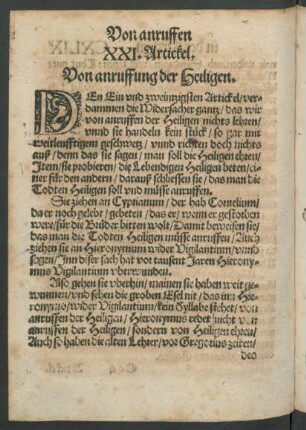 Von anruffen
XXI. Artickel.
Von anruffung der Heiligen.
DEn Ein vnd zweintzigsten Artickel / ver-
dammen die Widersacher gantz / das wir
von anruffen der Heiligen nichts lehren /
vnnd sie handeln kein stück / so gar mit
weitleufftigen geschwetz / vnnd richten doch nichts
auß / denn das sie sagen / man soll die Heiligen ehren /
Item / sie probieren / die Lebendigen Heiligen beten / ei-
ner für den andern / darauß schliessen sie / das man die
Todten Heiligen soll vnd müsse anruffen.
Sie ziehen an Cyprianum / der hab Cornelium /
da er noch gelebt / gebeten / das er / wann er gestorben
were / für die Brüder bitten wolt / Damit beweisen sie /
das man die Todten Heiligen müsse anruffen / Auch
ziehen sie an Hieronymum wider Vigilantium / vnnd
sagen / Inn diser sach hat vor tausent Jaren Hierony-
mus Vigilantium vberwunden.
Also gehen sie vberhin / mainen sie haben weit ge-
wunnen / vnd sehen die groben Esel nit / das im Hie-
ronymo / wider Vigilantium / kein Syllabe stehet / von
anruffen der Heiligen / Hieronymus redet nicht von
anruffen der Heiligen / sondern von Heiligen ehren /
Auch so haben die alten Lehrer / vor Gregorius zeiten /
des